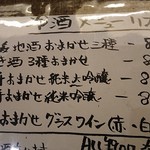 酒メニューリス
地酒おまかせ三種 - 8
酒3種おまかせ - 8
おまかせ 純米大吟醸 - 8
おまかせ 純米吟醸 - 8
おまかせ グラスワイン(赤、白
All ¥800